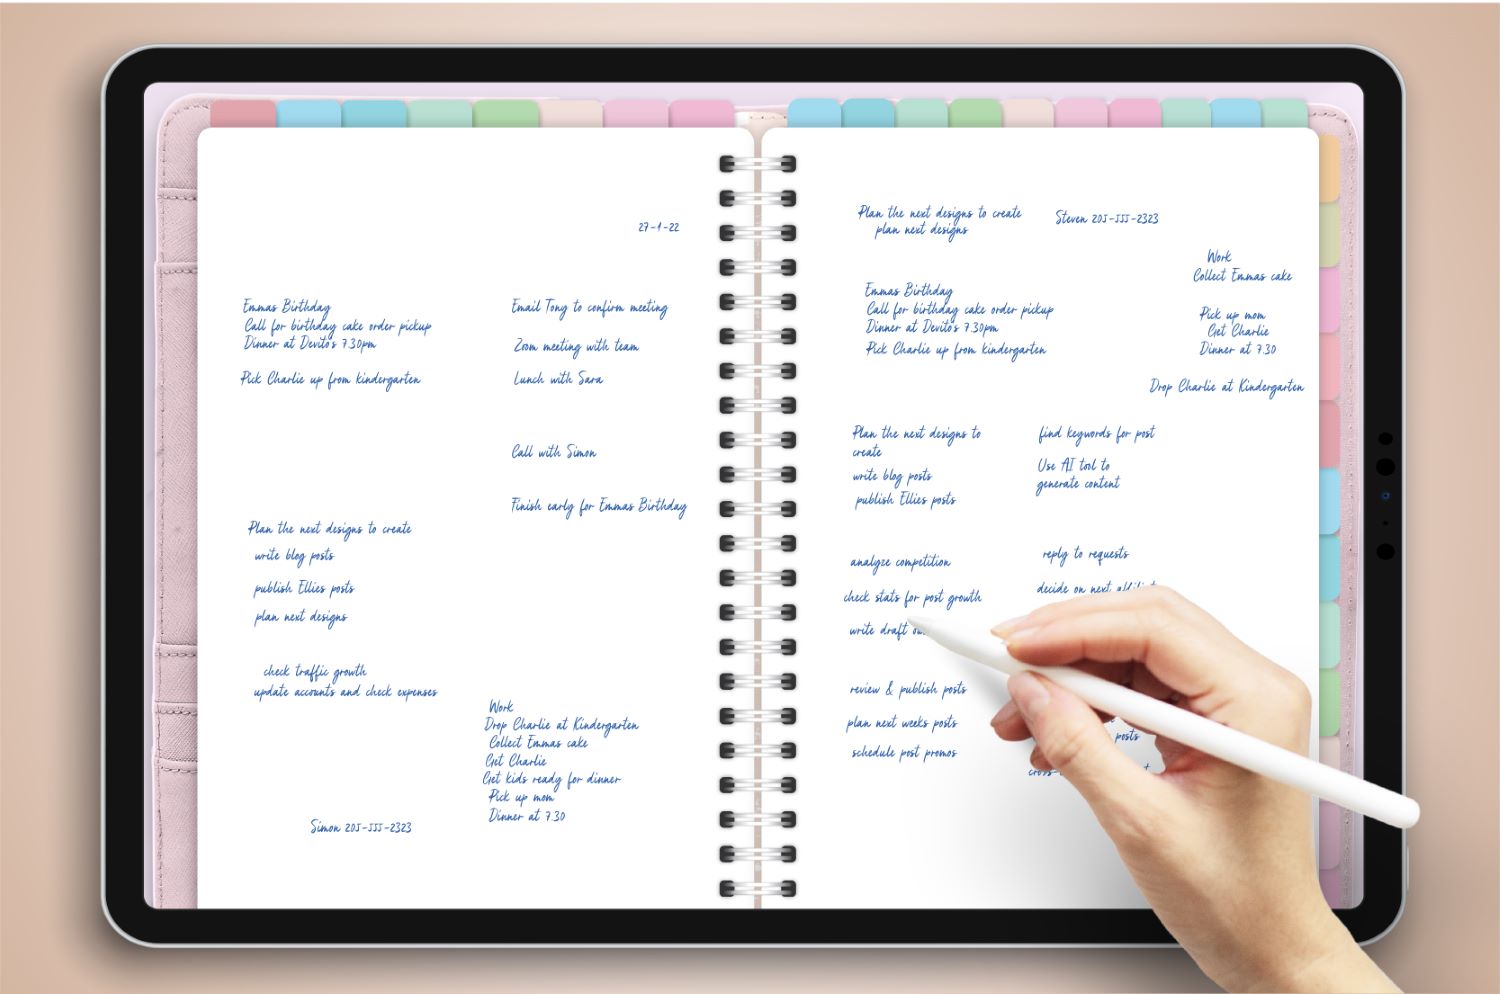 27-1-22
Emmas Birthday
Call for birthday cake order pickup
Dinner at Devito's 7.30pm
Pick Charlie up from kindergarten
Email Tony to confirm meeting
Zoom meeting with team
Lunch with Sara
Call with Simon
Finish early for Emmas Birthday
Plan the next designs to create
write blog posts
publish Ellies posts
plan next designs
check traffic growth
update accounts and check expenses
Work
Drop Charlie at Kindergarten
Collect Emmas cake
Get Charlie
Get kids ready for dinner
Pick up mom
Dinner at 7.30
Simon 205-555-2323
Plan the next designs to create
plan next designs
Steven 205-555-2323
Work
Collect Emmas cake
Emmas Birthday
Call for birthday cake order pickup
Dinner at Devito's 7.30pm
Pick Charlie up from kindergarten
Pick up mom
Get Charlie
Dinner at 7.30
Drop Charlie at Kindergarten
Plan the next designs to
create
write blog posts
publish Ellies posts
find keywords for post
Use AI tool to
generate content
analyze competition
check stats for post growth
write draft
review & publish posts
plan next weeks posts
schedule post promos
reply to requests
decide on next
posts